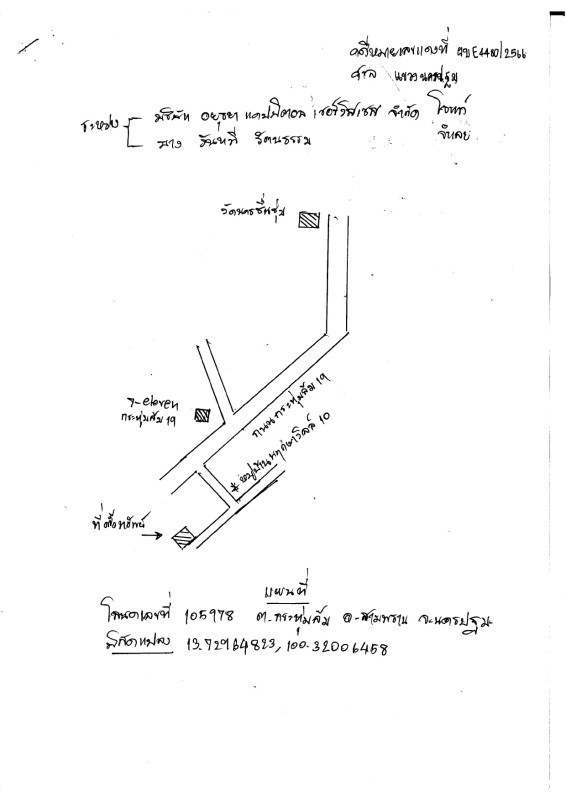 คดีหมายเลขแดงที่ ผบE4480/2566
ศาล แขวงนครปฐม
ระหว่าง
บริษัท อยุธยา แคปปิตอล เซอร์วิสเซส จำกัด โจทก์
นาง วันที รัตนธรรม จำเลย
วัดนครชื่นชุ่ม
7-eleven
กระทุ่มล้ม 19
ถนน กระทุ่มล้ม 19
* หมู่บ้านพฤกษาวิลล์ 10
ที่ตั้งทรัพย์
แผนที่
โฉนดเลขที่ 105978 ต.กระทุ่มล้ม อ.สามพราน จ.นครปฐม
พิกัดแปลง 13.72964823, 100.32006458